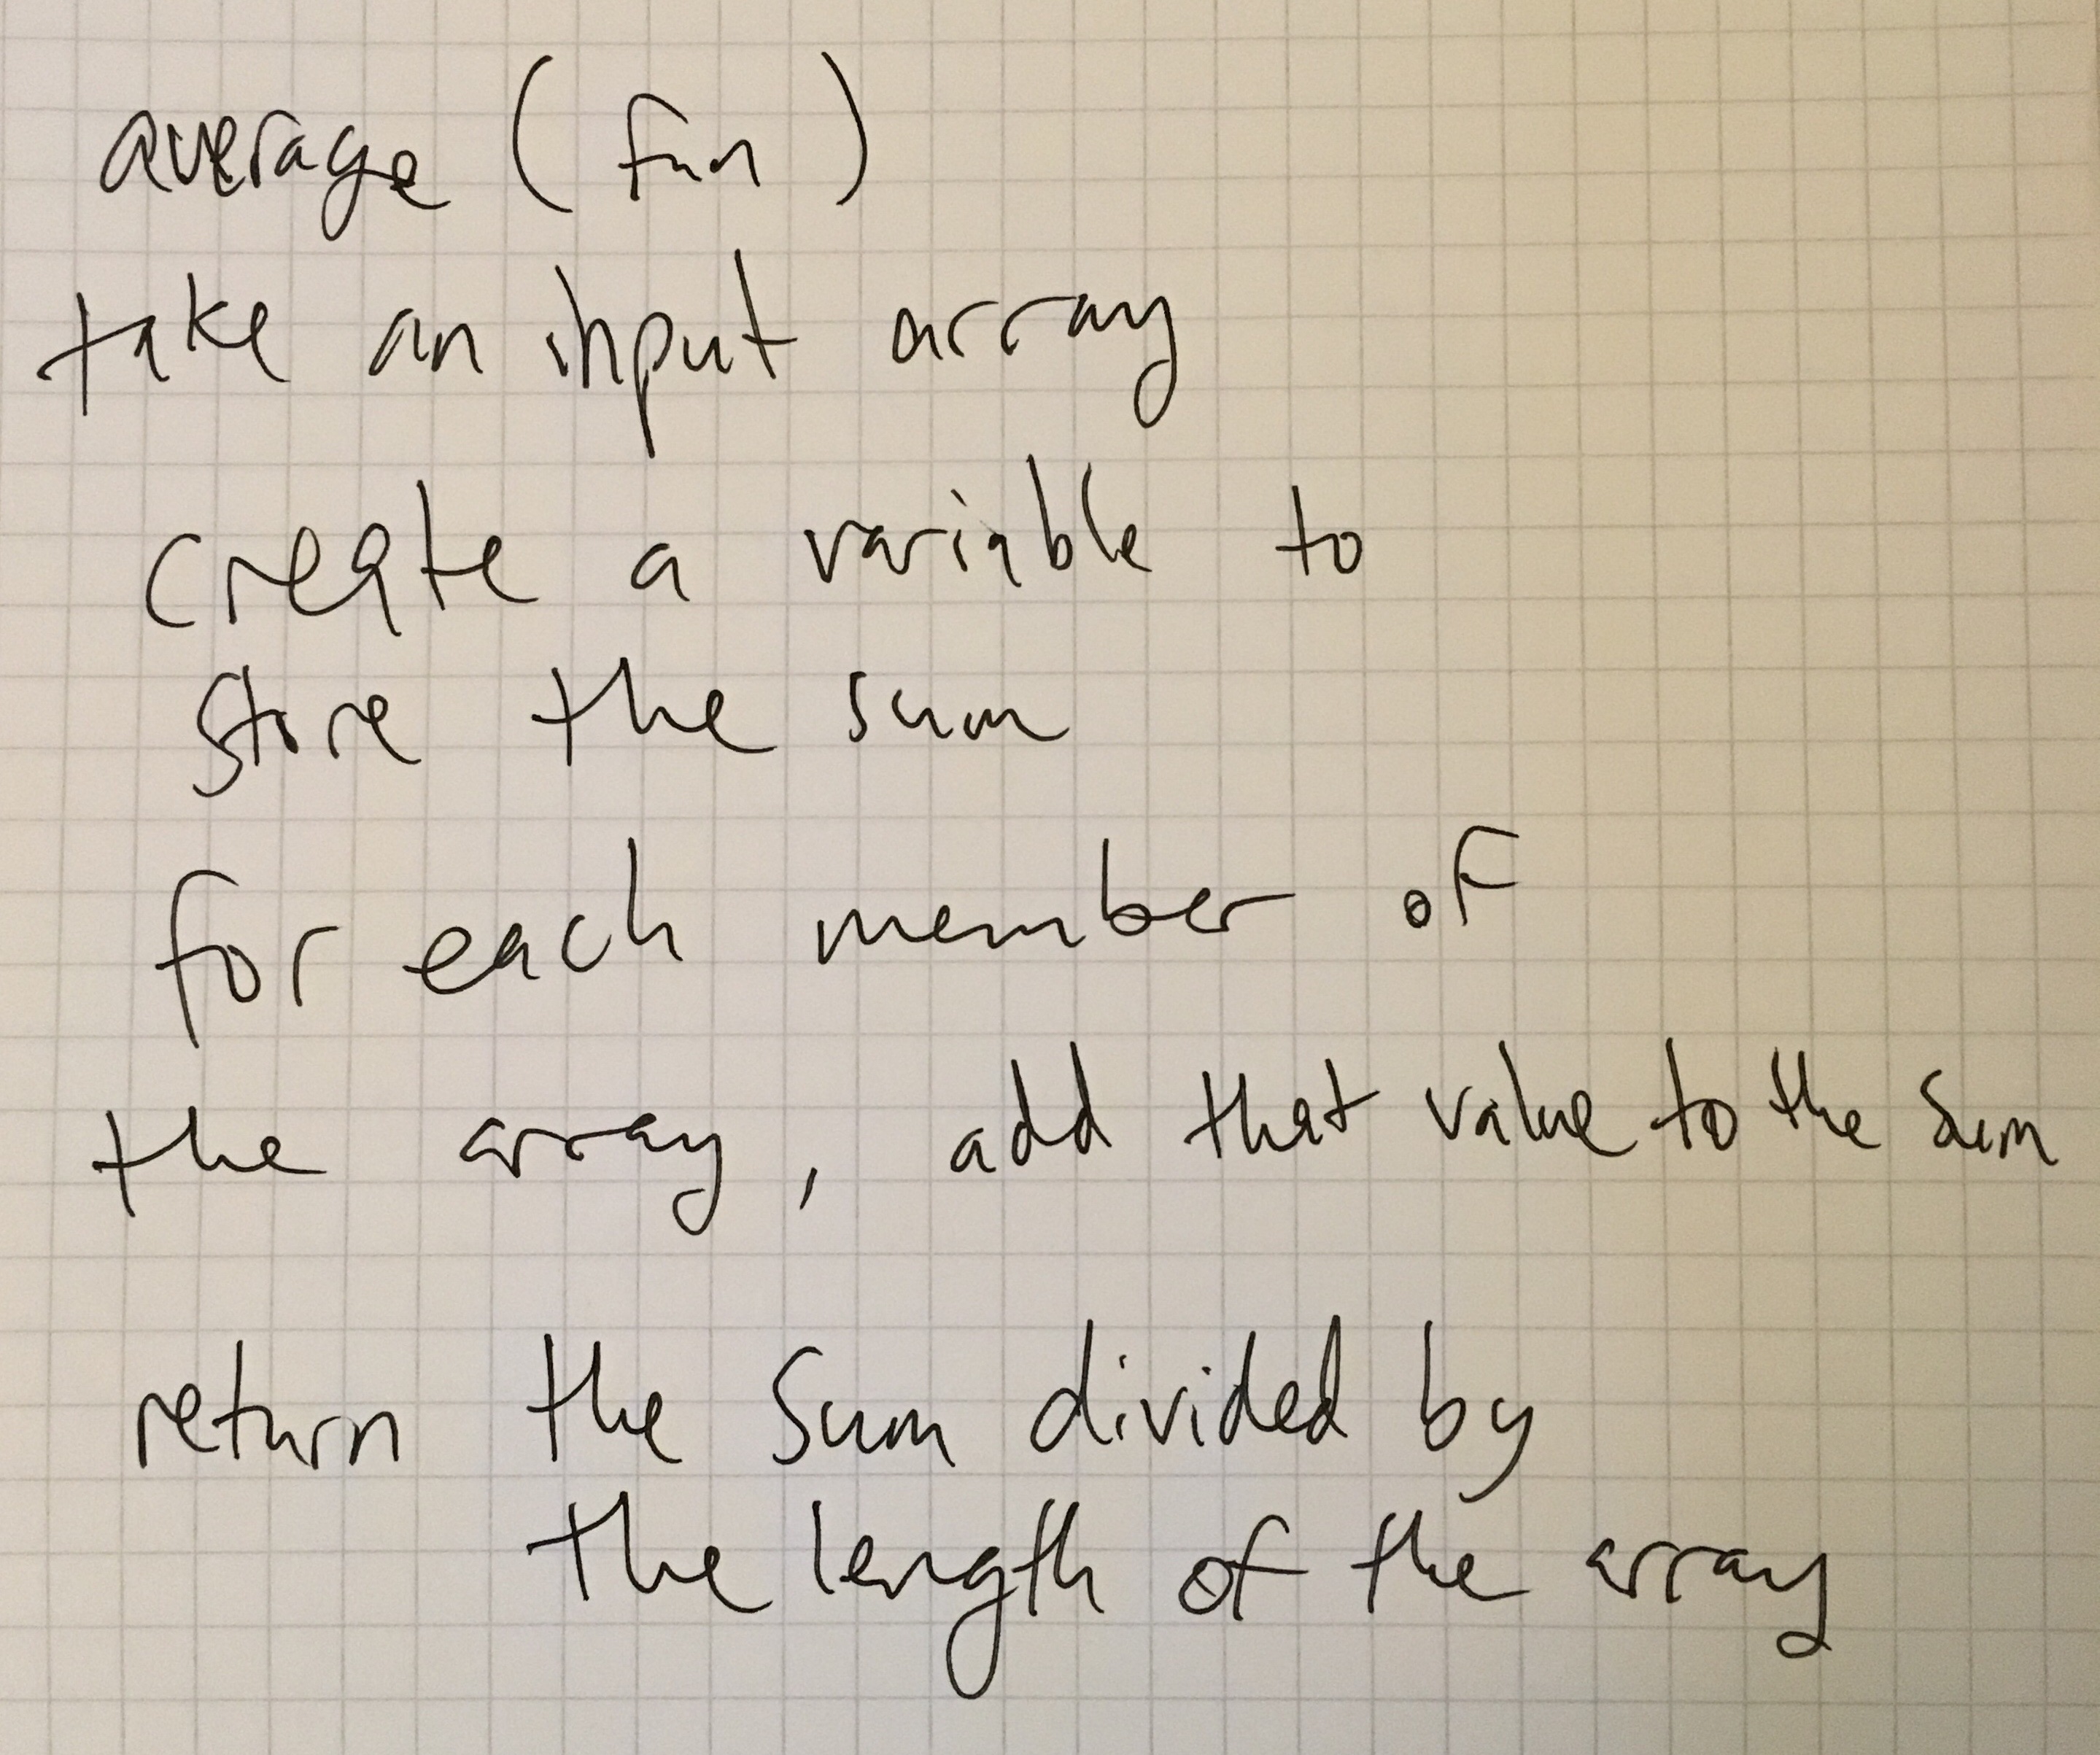 average (fun)
take an input array
create a variable to
store the sum
for each member of
the array, add that value to the sum
return the sum divided by
the length of the array